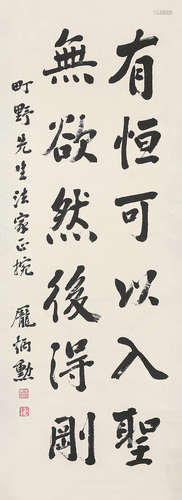 有恒可以入聖
無欲然後得剛
町野先生法家正捥
龐炳勳